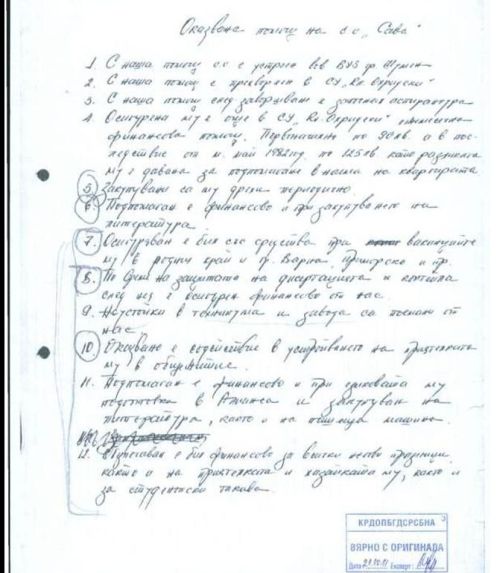 Оказвана помощ на с.с. "Сава"
1. С наша помощ с.с е устроен във ВУЗ гр. Шумен
2. С наша помощ е прехвърлен в СУ "Кл. Охридски"
3. С наша помощ след завършване е започнал аспирантура
4. Осигурена му е още в СУ "Кл. Охридски" ежемесечна
финансова помощ. Първоначално по 90лв. а в пос-
ледствие от м. май 1982год. по 125лв като разликата
му е давана за подпомагане в наема на квартирата
5. Закупувани са му дрехи периодично.
6. Подпомаган е финансово и при закупуването на
литература.
7. Осигуряван е бил със средства при ваканциите
му в родния край и гр. Варна, Приморско и др.
8. По време на защитата на дисертацията и коктейла
след нея е осигурен финансово от нас.
9. Неустойки в техникума и завода са поемани от
нас
10. Оказвано е съдействие в устройването на приятелката
му в общежитие.
11. Подпомаган е финансово и при езиковата му
подготовка в Алианса и закупуван на
литература, както и на пишеща машина.
12. е бил финансово за всички негови празници
както и на приятелката и хазайката му, както и
за студентски такива.
КРДОПБГДСРСБНА
ВЯРНО С ОРИГИНАЛА
Дата Експерт: